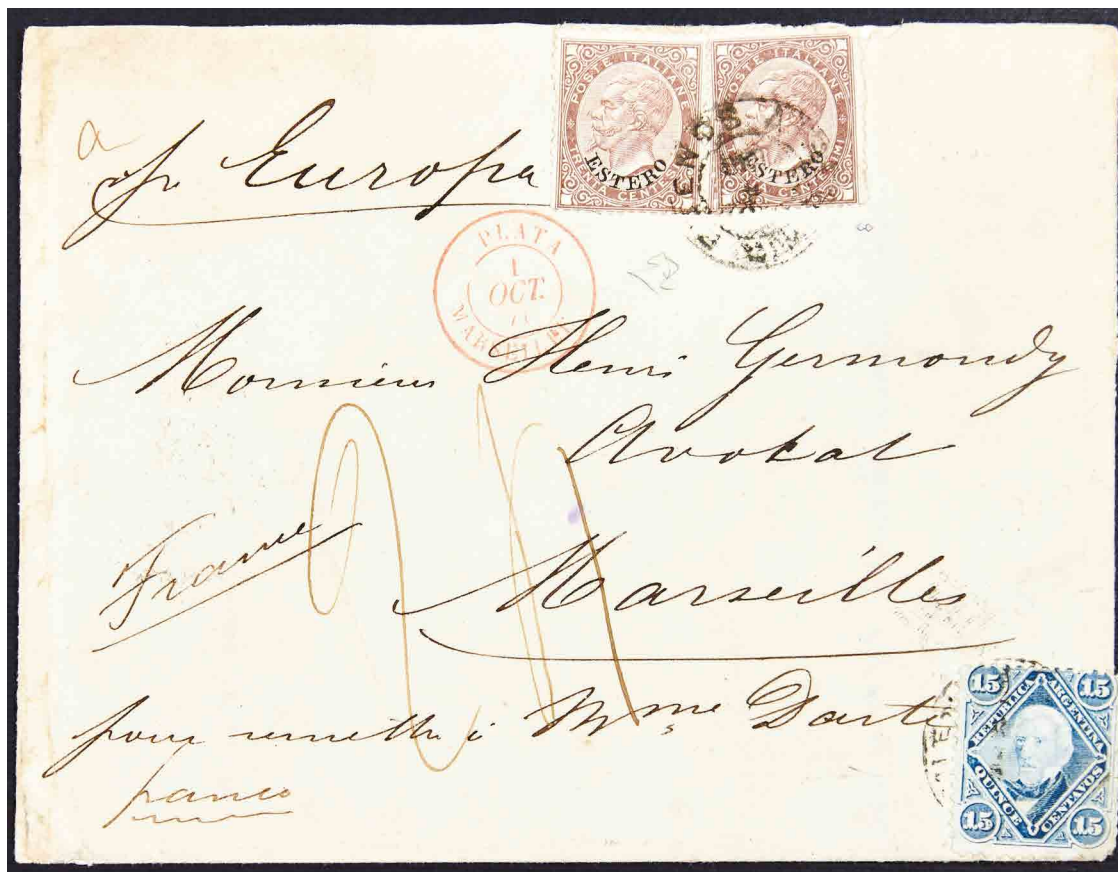 POSTE ITALIANE
TRENTA CENTESIMI
ESTERO
POSTE ITALIANE
CENTESIMI
ESTERO
a
pr Europa
PLATA
1
OCT.
MARSEILLE
Monsieur Henri Germondy
Avokat
France
Marseilles
pour remettre à Mme Darte
franco
15 15
REPUBLICA ARGENTINA
QUINCE CENTAVOS
15 15